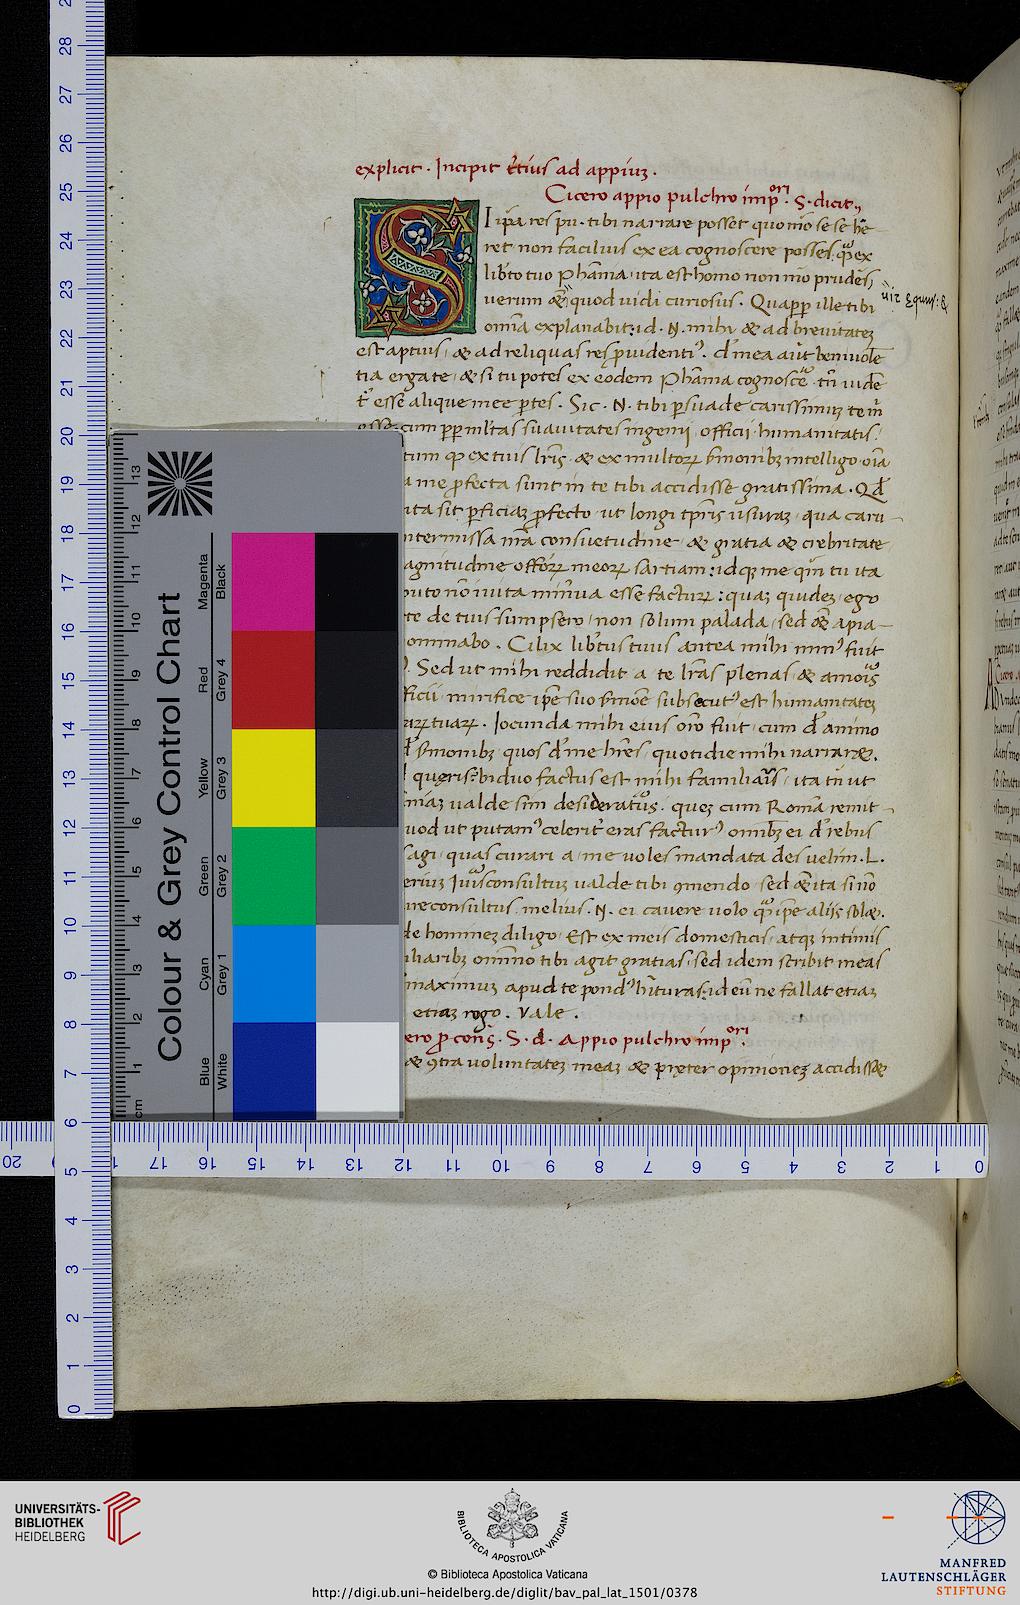 explicit. Incipit t̃tius ad appiuʒ.
Cicero appio pulchro imp̃ori. S. dicit,,
S
I ip̃a res pu. tibi narrare posset quomo se se he-
ret non facilius ex ea cognoscere posses. q̃ᵃ ex
lib̃to tuo phãma ita est homo non mo prudẽs,
uerum quod uidi curiosus. Quapp̱ ille tibi
omĩa explanabit: id. N. mihi & ad breuitateʒ
est aptius, & ad reliquas res prudenti. d̾ mea aũt beniuolẽ
tia erga te, & si tu potes ex eodem phãma cognosce. tñ uidẽ
esse alique mee ptes. Sic. N. tibi psuade carissimuʒ te
cum pp̱ mltas suauitates ingenij, officij, humanitatis
ex tuis lr̃is, & ex multorꝝ monibʒ intelligo oĩa
a me pfecta sunt in te tibi accidisse gratissima. Qd̾
ita sit pficiaʒ pfecto, ut longi tpr̃is usuraʒ, qua caru
intermissa nr̃a consuetudine, & gratia & crebritate
agnitudine meorꝝ sartiam: idqʒ me qm̃ tu ita
puto nõ iuita minua esse facturꝝ: quaʒ quideʒ ego
te de tuis sumpsero, non solum palada, sed & apia-
ommabo. Cilix lib̃tus tuus antea mihi min fuit
. Sed ut mihi reddidit a te lr̃as plenas & amoris
ficij mirifice ip̃e suo mõe subsecut est humanitateʒ
tuarꝝ. Iocunda mihi eius orõ fuit, cum d̾ animo
monibʒ, quos d̾ me hr̃es, quotidie mihi narrar&.
queris? biduo factus est mihi familiaris, ita tñ ut
miaʒ ualde sim desideraturus. queʒ cum Romã remit
uod ut putam celerit eras factur omibʒ ei d̾ rebus
agi, quas curari a me uoles mandata des uelim. L.
erius Iurisconsultus ualde tibi 9mendo, sed & ita si nõ
ureconsultus melius. N. ei cauere uolo q̃ᵃ ip̃e alijs sol&.
de homineʒ diligo. Est ex meis domesticis, atqʒ intimis
iliaribʒ omĩno tibi agit gratias, sed idem scribit meas
maximuʒ apud te pond hituras: id eũ ne fallat etiaʒ
etiaʒ rogo. Vale.
ero p cons̃. S. d. Appio pulchro imp̃ori.
& 9tra uoluntateʒ meaʒ & preter opinioneʒ accidiss&
uir & quus: &
Colour & Grey Control Chart
Blue Cyan Green Yellow Red Magenta
White Grey 1 Grey 2 Grey 3 Grey 4 Black
cm 1 2 3 4 5 6 7 8 9 10 11 12 13
28
27
26
25
24
23
22
21
20
19
18
17
16
15
14
13
12
11
10
9
8
7
6
5
4
3
2
1
0
20 17 16 15 14 13 12 11 10 9 8 7 6 5 4 3 2 1 0
UNIVERSITÄTS-
BIBLIOTHEK
HEIDELBERG
BIBLIOTECA APOSTOLICA VATICANA
© Biblioteca Apostolica Vaticana
http://digi.ub.uni-heidelberg.de/diglit/bav_pal_lat_1501/0378
MANFRED
LAUTENSCHLÄGER
STIFTUNG